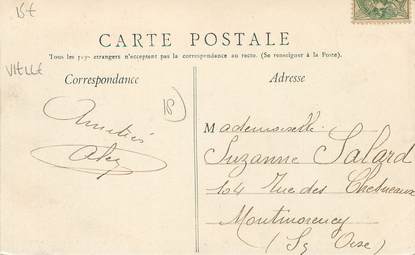 15€
CARTE POSTALE
Tous les pays étrangers n'acceptent pas la correspondance au recto. (Se renseigner à la Poste).
VIELLE
Correspondance
Adresse
Amitiés
18
Mademoiselle
Suzanne Salard
104 Rue des
Montmorency
(S et Oise)